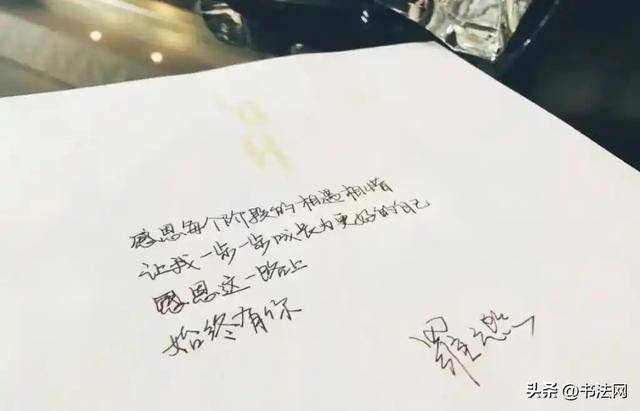 感恩每个阶段的相遇相惜
让我一步一步成长为更好的自己
感恩这一路上
始终有你
头条 @书法网